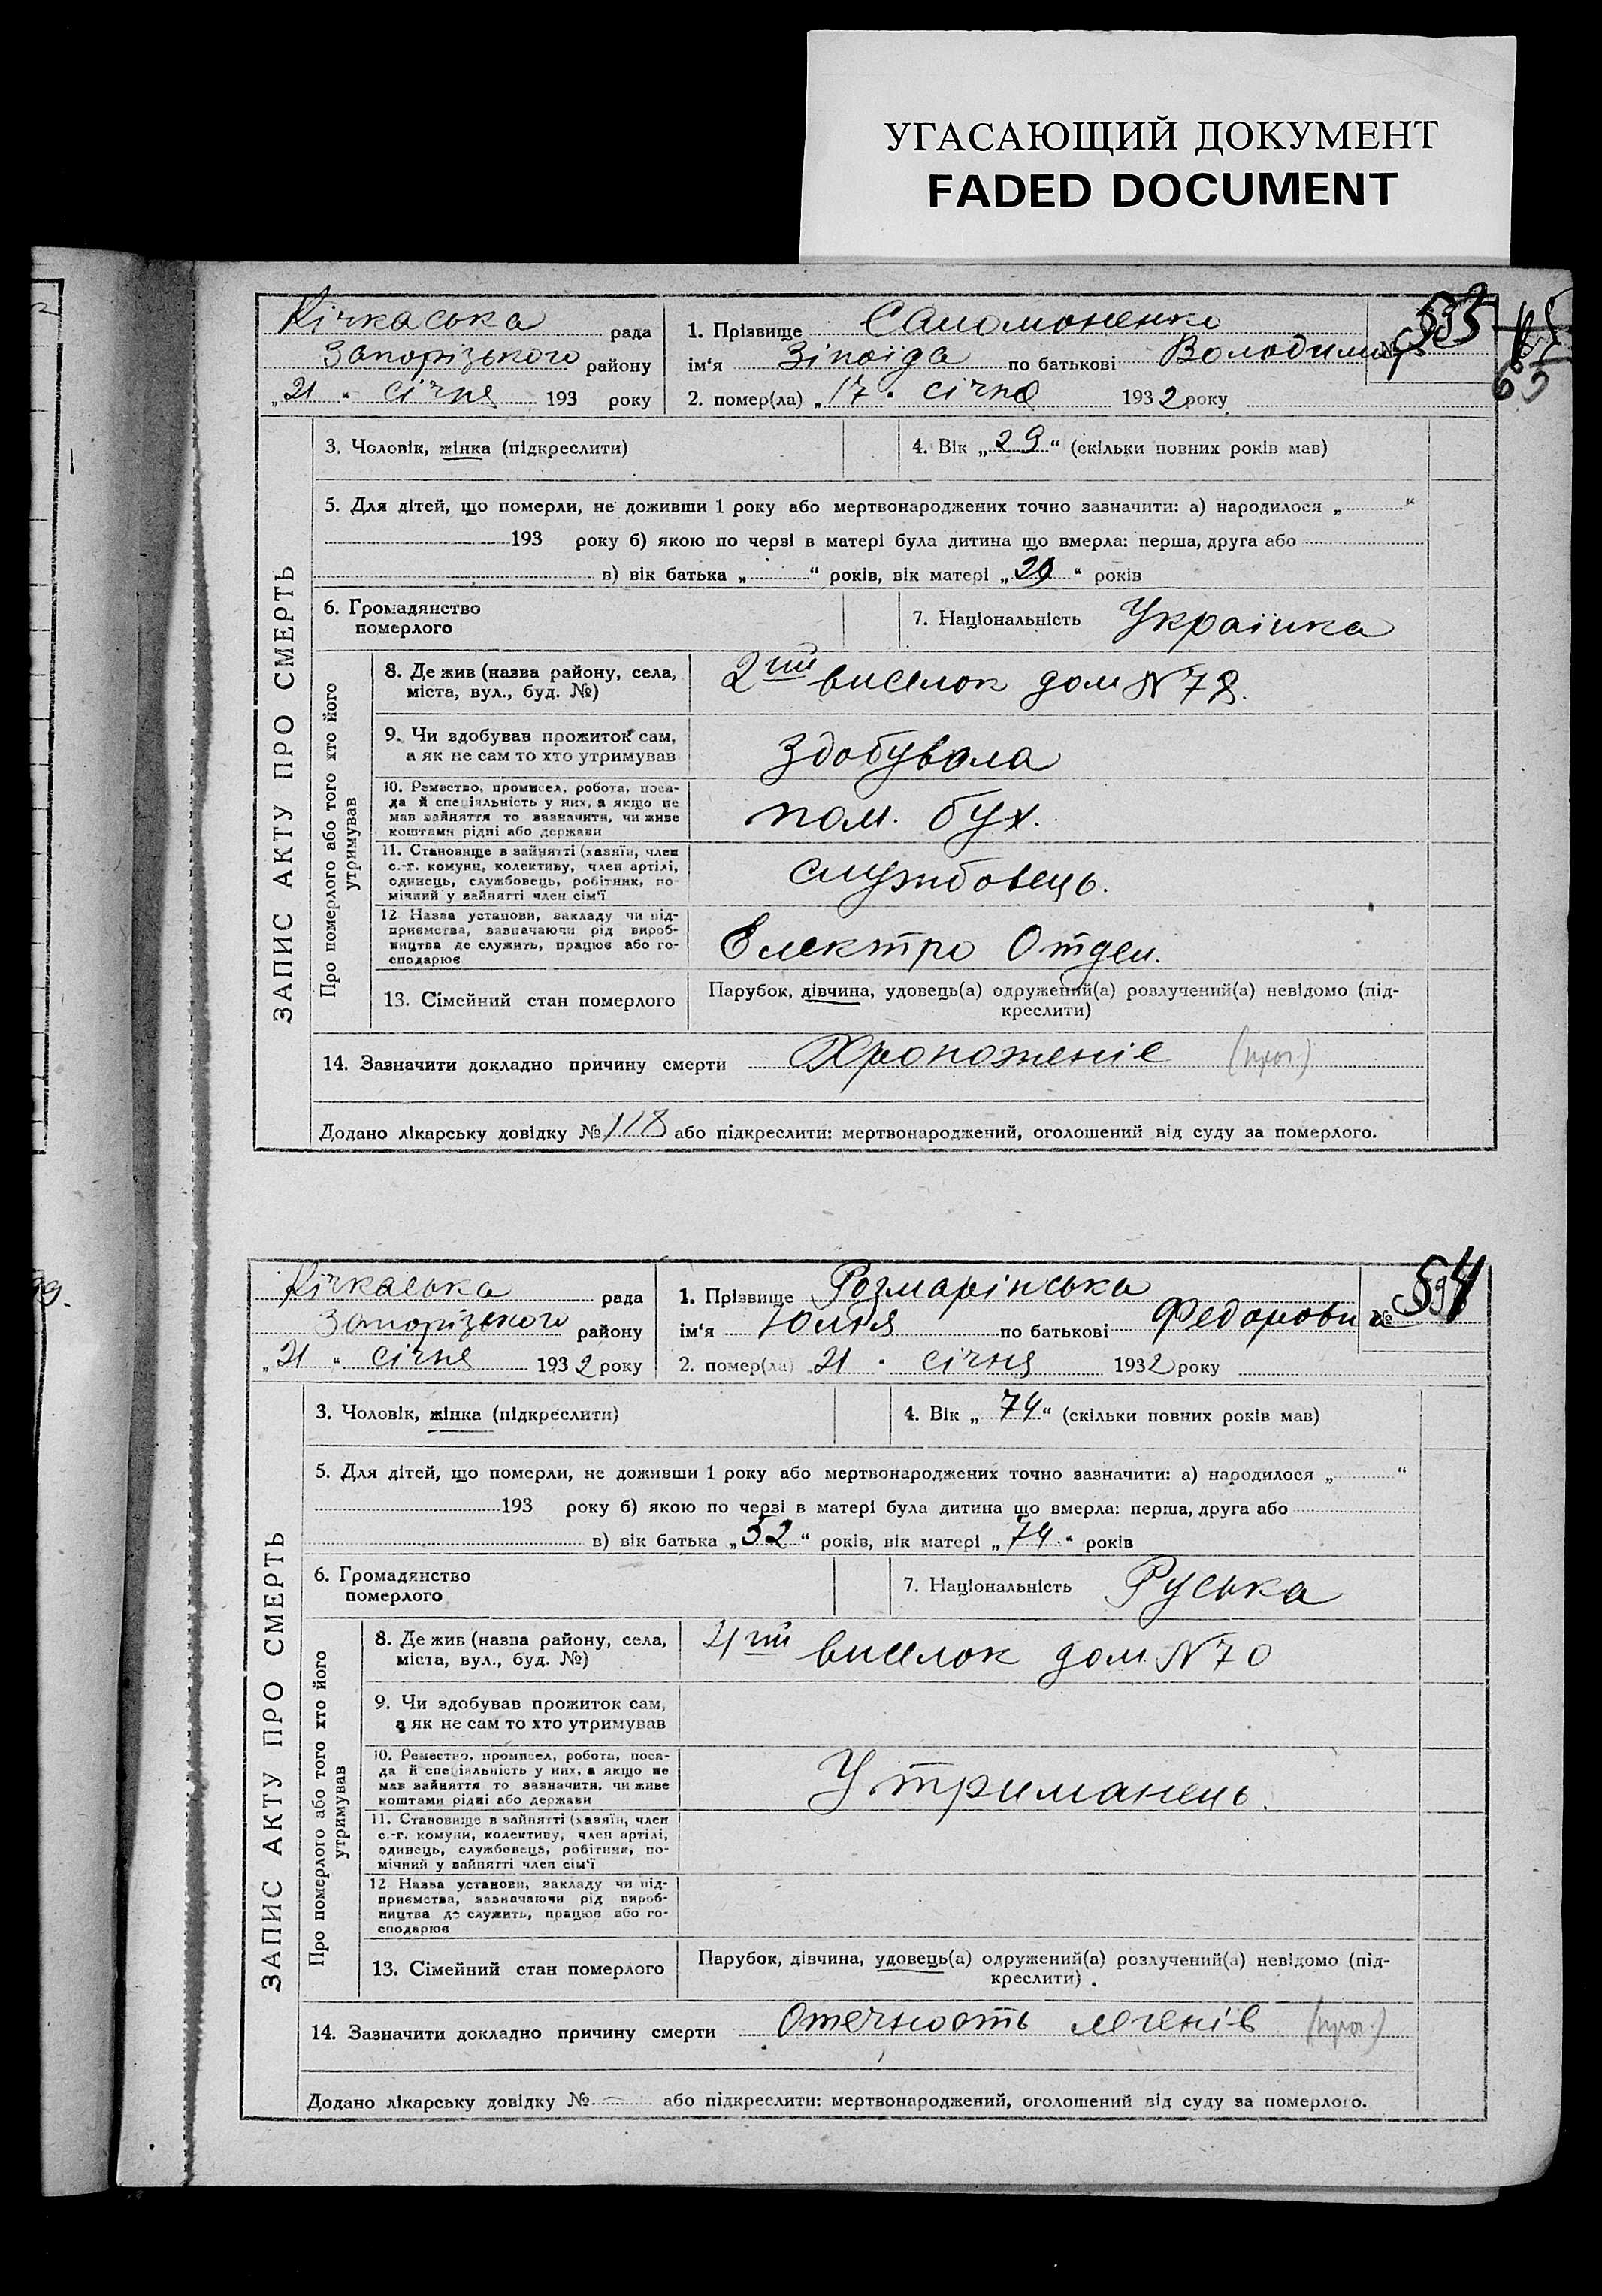 УГАСАЮЩИЙ ДОКУМЕНТ
FADED DOCUMENT
Кічкаська рада
Запорізького району
„21 “ січня 193 року
1. Прізвище Саломоненко
ім‘я Зіноїда по батькові Володимир
2. помер(ла) „17 “ січня 1932 року
№
65
ЗАПИС АКТУ ПРО СМЕРТЬ
3. Чоловік, жінка (підкреслити)
4. Вік „29“ (скільки повних років мав)
5. Для дітей, що померли, не доживши 1 року або мертвонароджених точно зазначити: а) народилося „ “
193 року б) якою по черзі в матері була дитина що вмерла: перша, друга або
в) вік батька „ “ років, вік матері „29“ років
6. Громадянство померлого
7. Національність Українка
Про померлого або того хто його утримував
8. Де жив (назва району, села,
міста, вул., буд. №)
2гий виселок дом №78.
9. Чи здобував прожиток сам,
а як не сам то хто утримував
Здобувала
10. Ремество, промисел, робота, поса-
да й спеціяльність у них, а якщо не
мав зайняття то зазначити, чи живе
коштами рідні або держави
пом. бух.
11. Становище в зайнятті (хазяїн, член
с.-г. комуни, колективу, член артілі,
одинець, службовець, робітник, по-
мічний у зайнятті член сім‘ї
службовець.
12. Назва установи, закладу чи під-
приємства, зазначаючи рід вироб-
ництва де служить, працює або го-
сподарює
Електро Отдел.
13. Сімейний стан померлого
Парубок, дівчина, удовець(а) одружений(а) розлучений(а) невідомо (під-
креслити)
14. Зазначити докладно причину смерти
Додано лікарську довідку № 118 або підкреслити: мертвонароджений, оголошений від суду за померлого.
Кічкаська рада
Запорізького району
„21 “ січня 1932 року
1. Прізвище Розмарінська
ім‘я Юлія по батькові Федоровна
2. помер(ла) „21 “ січня 1932 року
№ 54
ЗАПИС АКТУ ПРО СМЕРТЬ
3. Чоловік, жінка (підкреслити)
4. Вік „74“ (скільки повних років мав)
5. Для дітей, що померли, не доживши 1 року або мертвонароджених точно зазначити: а) народилося „ “
193 року б) якою по черзі в матері була дитина що вмерла: перша, друга або
в) вік батька „52“ років, вік матері „74“ років
6. Громадянство померлого
7. Національність Руська
Про померлого або того хто його утримував
8. Де жив (назва району, села,
міста, вул., буд. №)
4гий виселок дом №70
9. Чи здобував прожиток сам,
а як не сам то хто утримував
10. Ремество, промисел, робота, поса-
да й спеціяльність у них, а якщо не
мав зайняття то зазначити, чи живе
коштами рідні або держави
Утриманець.
11. Становище в зайнятті (хазяїн, член
с.-г. комуни, колективу, член артілі,
одинець, службовець, робітник, по-
мічний у зайнятті член сім‘ї
12. Назва установи, закладу чи під-
приємства, зазначаючи рід вироб-
ництва де служить, працює або го-
сподарює
13. Сімейний стан померлого
Парубок, дівчина, удовець(а) одружений(а) розлучений(а) невідомо (під-
креслити)
14. Зазначити докладно причину смерти Отечность легенів
Додано лікарську довідку № — або підкреслити: мертвонароджений, оголошений від суду за померлого.